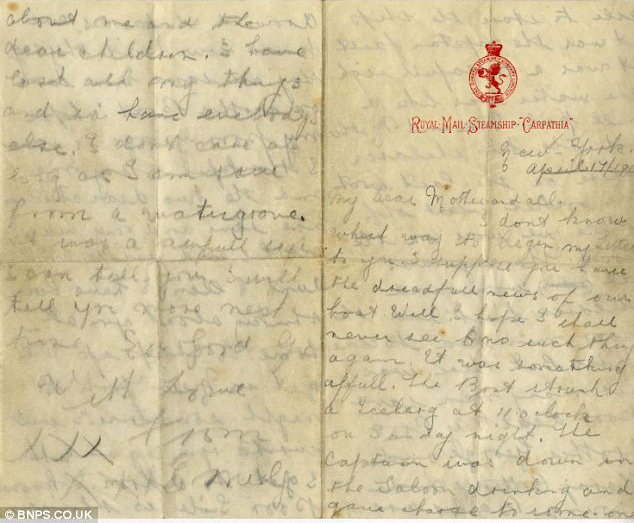 ROYAL·MAIL·STEAMSHIP·"CARPATHIA"
New York.
April 17/19
My dear Mother and all.
I dont know
what way to begin my letter
to you I suppose you have
the dreadfull news of our
boat Well I hope I shall
never see no such thing
again. It was something
affull. The Boat struck
a Iceberg at 11 oclock
on Sunday night. The
Captain was down in
the Saloon drinking and
gave charge to some one
about me and the
dear children. I have
lost all my things
and so have everybody
else. I dont care as
long as I am save
from a watergrave.
was a awfull sight
I can tell you I will
tell you more next
time So good by
With Love
from
XXX
© BNPS.CO.UK